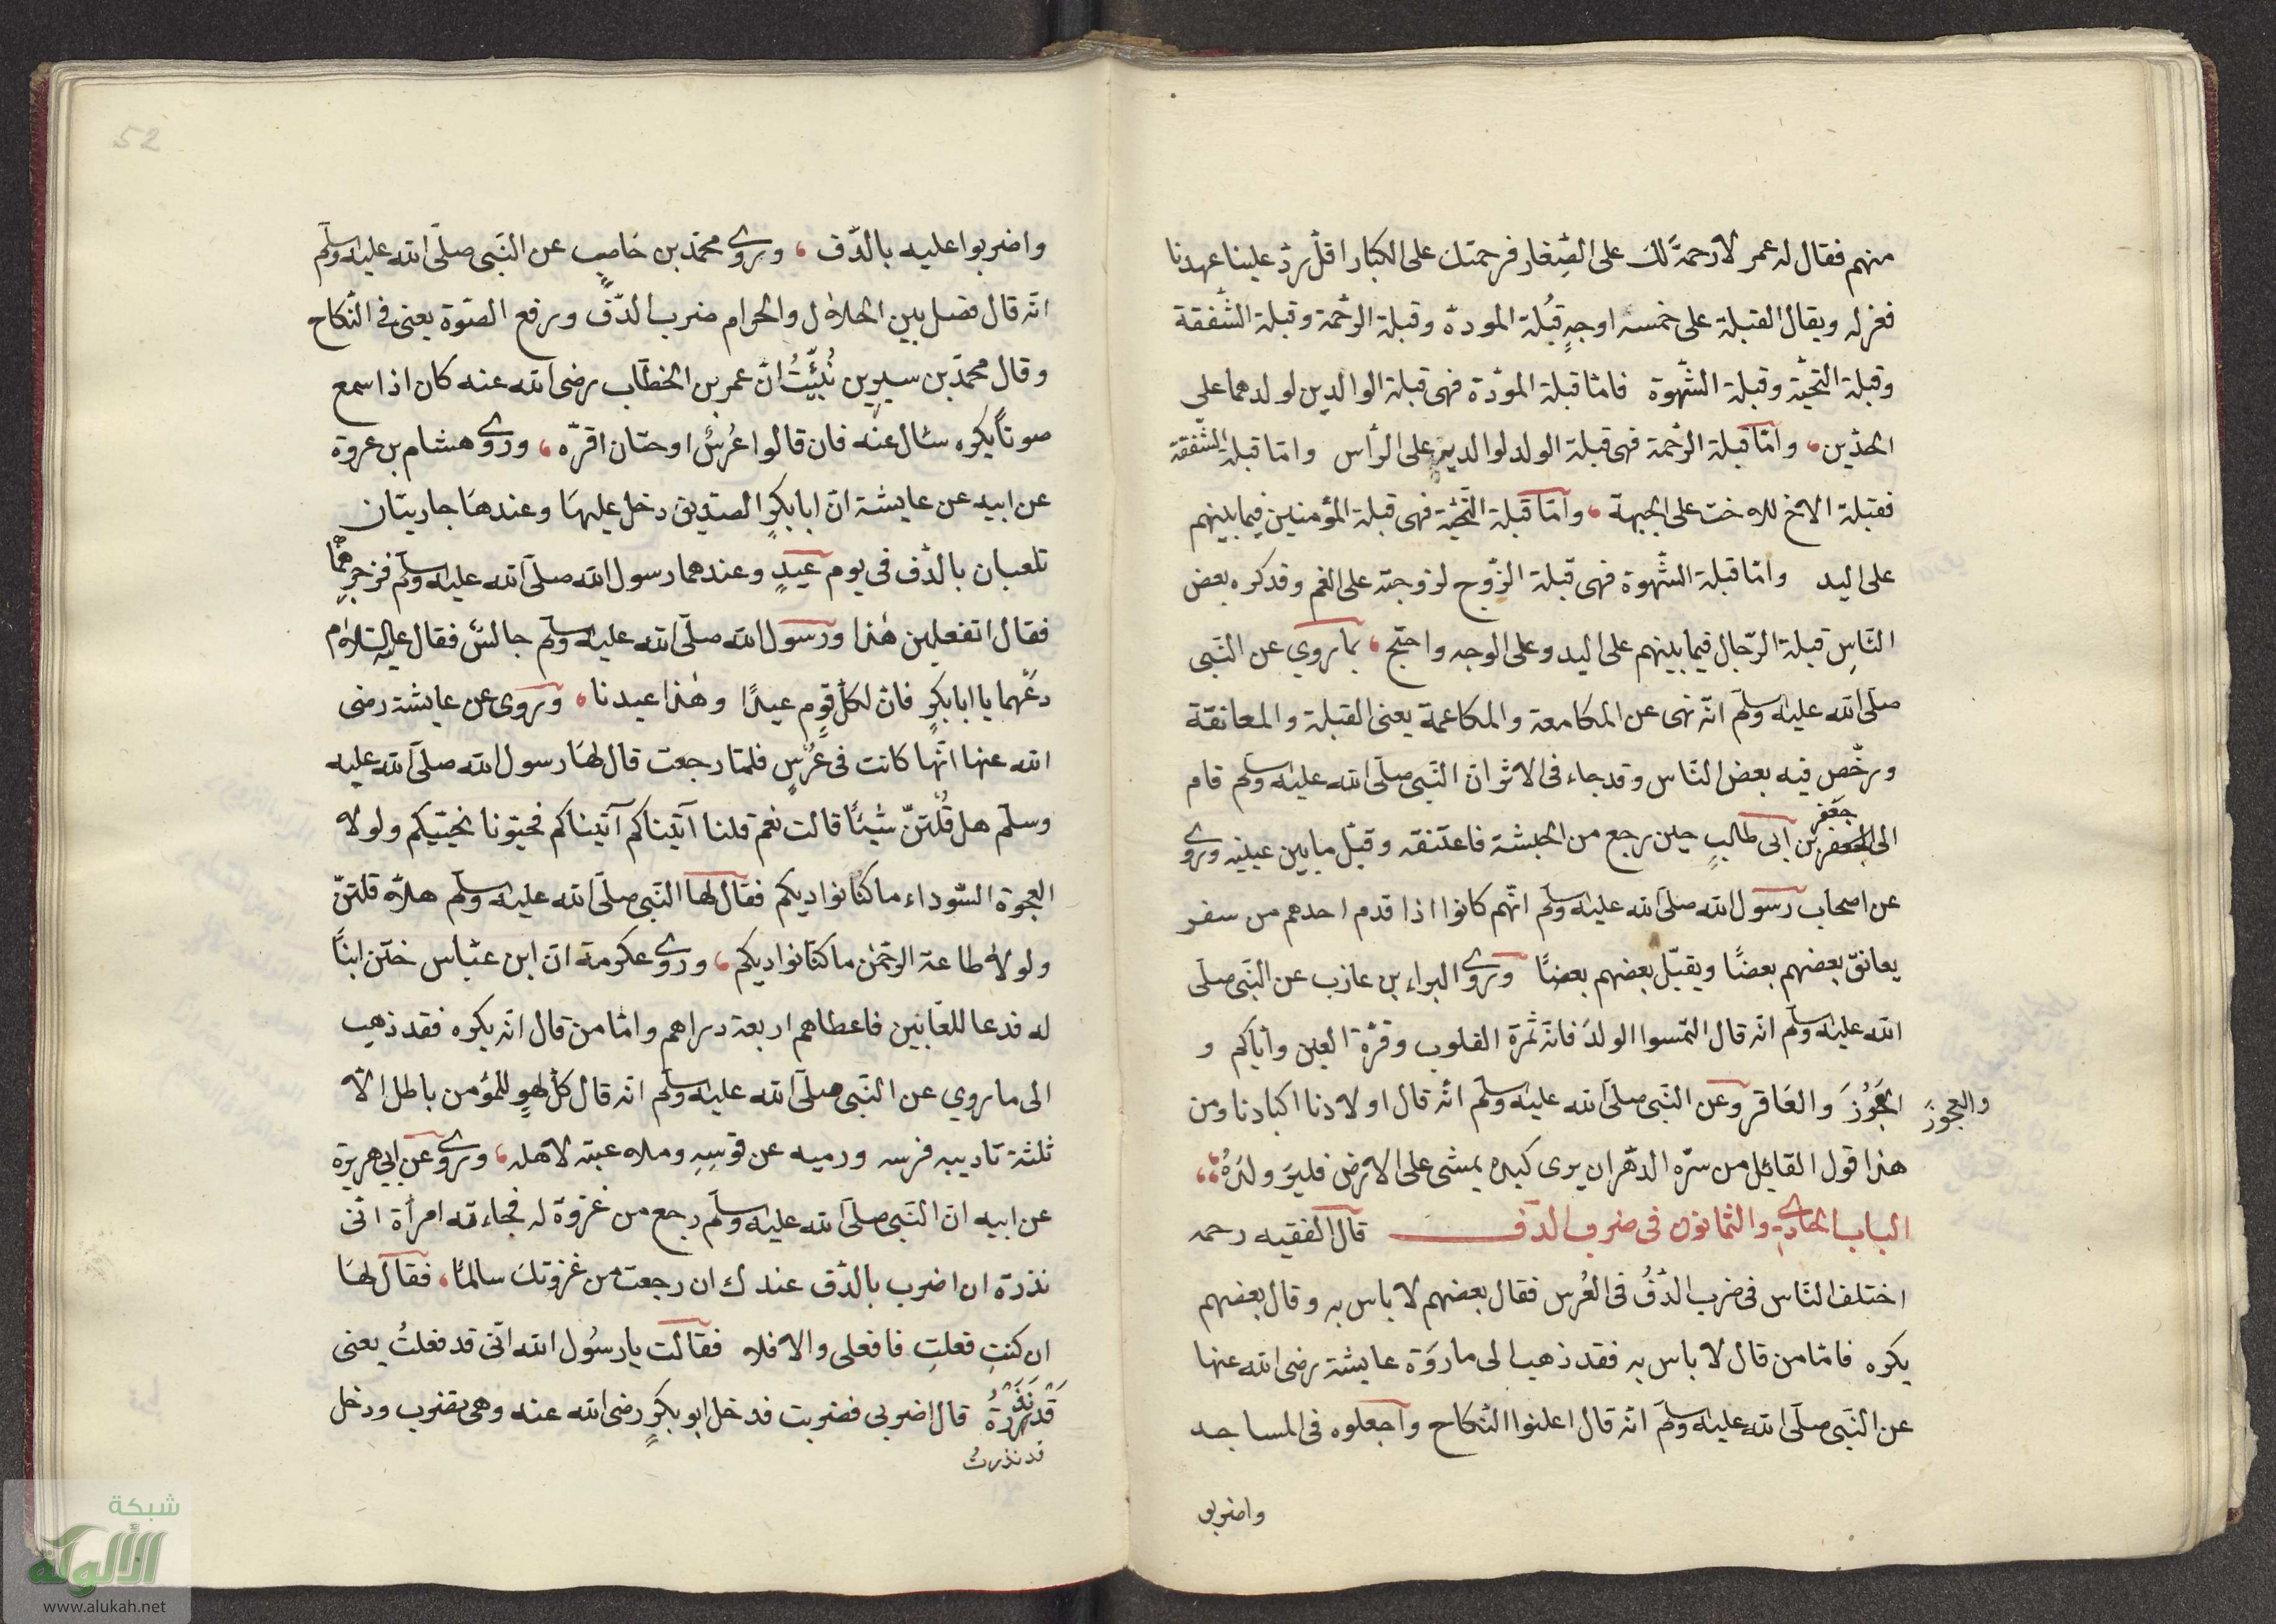 منهم فقال له عمر لا رحمة لك على الصِغار فرحمتك على الكبار اقلّ ردّ علينا عهدنا
فعزله ويقال القبلة على خمسة اوجهٍ قُبلة المودة وقبلة الرحْمة وقبلة الشّفقة
وقبلة التحيّة وقبلة الشّهوة فامّا قبلة المودّة فهى قبلة الوالدين لولدهما على
الخدّين، وامّا قبلة الرّحمة فهى قبلة الولد لوالديه على الرأس وامّا قبلة الشّفقة
فقبلة الاخ للاخت على الجبهة، وامّا قبلة التّحيّة فهى قبلة المؤمنين فيما بينهم
على اليد وامّا قبلة الشّهوة فهى قبلة الزّوج لزوجته على الفم وقد كره بعض
النّاسِ قبلة الرّجال فيما بينهم على اليد وعلى الوجه واحتّج، بما روي عن النّبى
صلّى الله عليه وسلّم انّه نهى عن المكامعة والمكاعمة يعنى القبلة والمعانقة
ورخّص فيه بعض النّاس وقد جاء فى الاثر انّ النّبى صلّى الله عليه وسلّم قام
جعفر
الى الجعفر بن ابى طالبٍ حين رجع من الحبشة فاعتنقه وقبّل ما بين عينيه وروى
عن اصحاب رسول الله صلّى الله عليه وسلّم انّهم كانوا اذا قدم احدهم من سفر
يعانق بعضهم بعضًا ويقبّل بعضهم بعضًا وروى البراء بن عازب عن النّبى صلّى
الله عليه وسلّم انّه قال التمسوا الولدَ فانّه ثمرة القلوب وقرّة العين وايّاكم و
الجَوُزَ والعَاقر وعن النّبى صلّى الله عليه وسلّم انّه قال اولادنا اكبادنا ومن
والعجوزَ
هذا قول القايل من سرّه الدّهر ان يرى كبده يمشى على الارض فليرَ ولدَهُ
الباب الحادى والثمانون فى ضرب الدّف قال الفقيه رحمه
اختلف النّاس فى ضرب الدّفُ فى العُرس فقال بعضهم لا باس به وقال بعضهم
يكره فامّا من قال لا باس به فقد ذهب الى ما روَة عايشة رضى الله عنها
عن النّبى صلّى الله عليه وسلّم انّه قال اعلنوا النّكاح واجعلوه فى المساجد
واضربو
52
واضربوا عليه بالدّف، وروى محمّد بن حَاصبٍ عن النّبى صلّى الله عليه وسلّم
انّه قال فصل بين الحلال والحرام ضرب الدّفِّ ورفع الصّوة يعنى فى النّكاح
وقال محمّد بن سيرين نُبّئتُ انّ عمر بن الخطّاب رضى الله عنه كان اذا سمع
صوتًا يكره سئال عنه فان قالوا عُرسٌ او ختان اقرّه، وروى هشام بن عروة
عن ابيه عن عايشة انّ ابا بكرٍ الصدّيق دخل عليهَا وعندهَا جاريتان
تلعبان بالدّف فى يوم عيدٍ وعندهما رسول الله صلّى الله عليه وسلّم فزجرهما
فقال اتفعلين هٰذا ورسول الله صلّى الله عليه وسلّم جالسٌ فقال عليه السّلام
دعهما يا ابا بكرٍ فان لكلّ قومٍ عيدًا وهٰذا عيدنا، وروى عن عايشة رضى
الله عنها انّها كانت فى عُرسٍ فلمّا رجعت قال لهَا رسول الله صلّى الله عليه
وسلّم هل قُلْتنّ شيئًا قالت نعم قلنا آتيناكم آتيناكم فحيّونا نحيّيكم ولولا
العجوة السّوداء ما كنّا نواديكم فقال لها النّبى صلّى الله عليه وسلّم هلاّ قلتنّ
ولولا طاعة الرحّمٰن ما كنّا نواديكم، وروى عكرمة انّ ابن عبّاس ختن ابنًا
له فدعا للعّابين فاعطاهم اربعة دراهم وامّا من قال انّه يكره فقد ذهب
الى ما روي عن النّبى صلّى الله عليه وسلّم انّه قال كلّ لهوٍ للمؤمن باطل الاّ
ثلثة تاديبه فرسه ورميه عن قوسِهِ وملاعبته لاهله، وروى عن ابى هريرة
عن ابيه انّ النّبى صلّى الله عليه وسلّم رجع من غزوة له فجاءته امرأة انّى
نذرة ان اضرب بالدّف عندك ان رجعت من غزوتك سالمًا، فقال لهَا
ان كنتِ فعلتِ فافعلى والا فلا فقالت يا رسُول الله انّى قد فعلتُ يعنى
قال اضربى فضربت فدخل ابو بكرٍ رضى الله عنه وهى تضرب ودخل
قد نذرتُ
شبكة
الألوكة
www.alukah.net